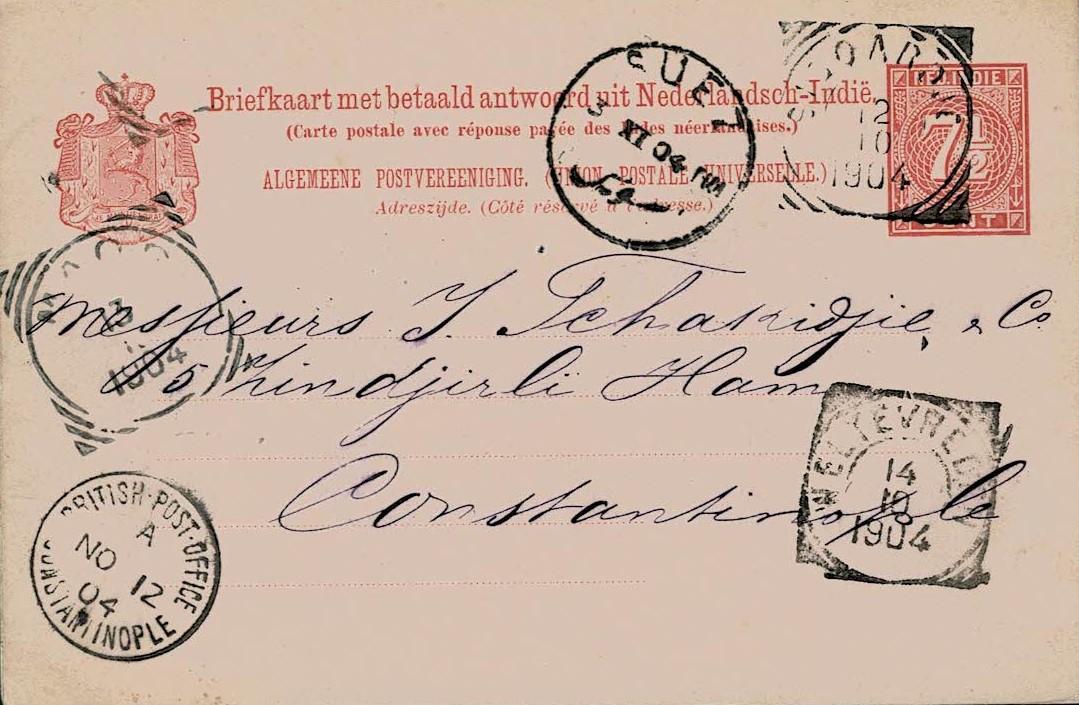 Briefkaart met betaald antwoord uit Nederlandsch-Indië.
(Carte postale avec réponse payée des Indes néerlandaises.)
ALGEMEENE POSTVEREENIGING. (UNION POSTALE UNIVERSELLE.)
Adreszijde. (Côté réservé à l'adresse.)
NED. INDIE
7½
CENT
SUEZ
3 XI 04
12
10
1904
1904
Messieurs J. Tchakidjie & Co
Zindjirli Ham
Constantinople
WELTEVREDEN
14
10
1904
BRITISH·POST·OFFICE
A
NO 12
04
CONSTANTINOPLE